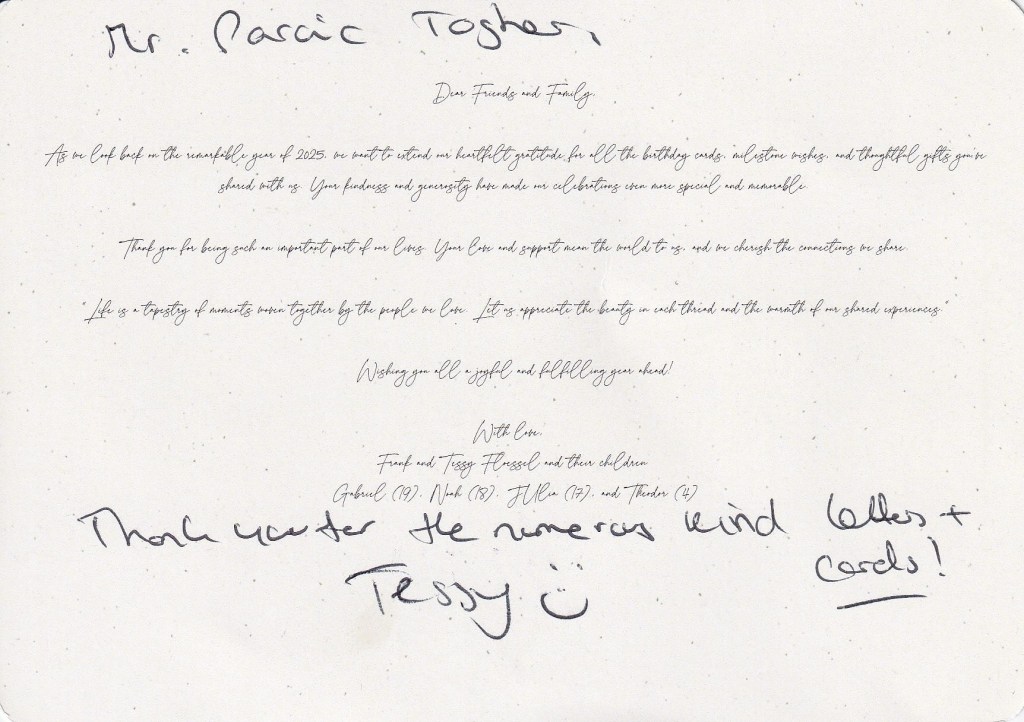 Mr. Parcic Togher,
Dear Friends and Family,
As we look back on the remarkable year of 2025, we want to extend our heartfelt gratitude for all the birthday cards, milestone wishes, and thoughtful gifts you've
shared with us. Your kindness and generosity have made our celebrations even more special and memorable.
Thank you for being such an important part of our lives. Your love and support mean the world to us, and we cherish the connections we share.
"Life is a tapestry of moments woven together by the people we love. Let us appreciate the beauty in each thread and the warmth of our shared experiences."
Wishing you all a joyful and fulfilling year ahead!
With love,
Frank and Tessy Floessel and their children
Gabriel (19), Noah (18), JUlia (17), and Theodor (4)
Thank you for the numerous kind letters +
cards!
Tessy